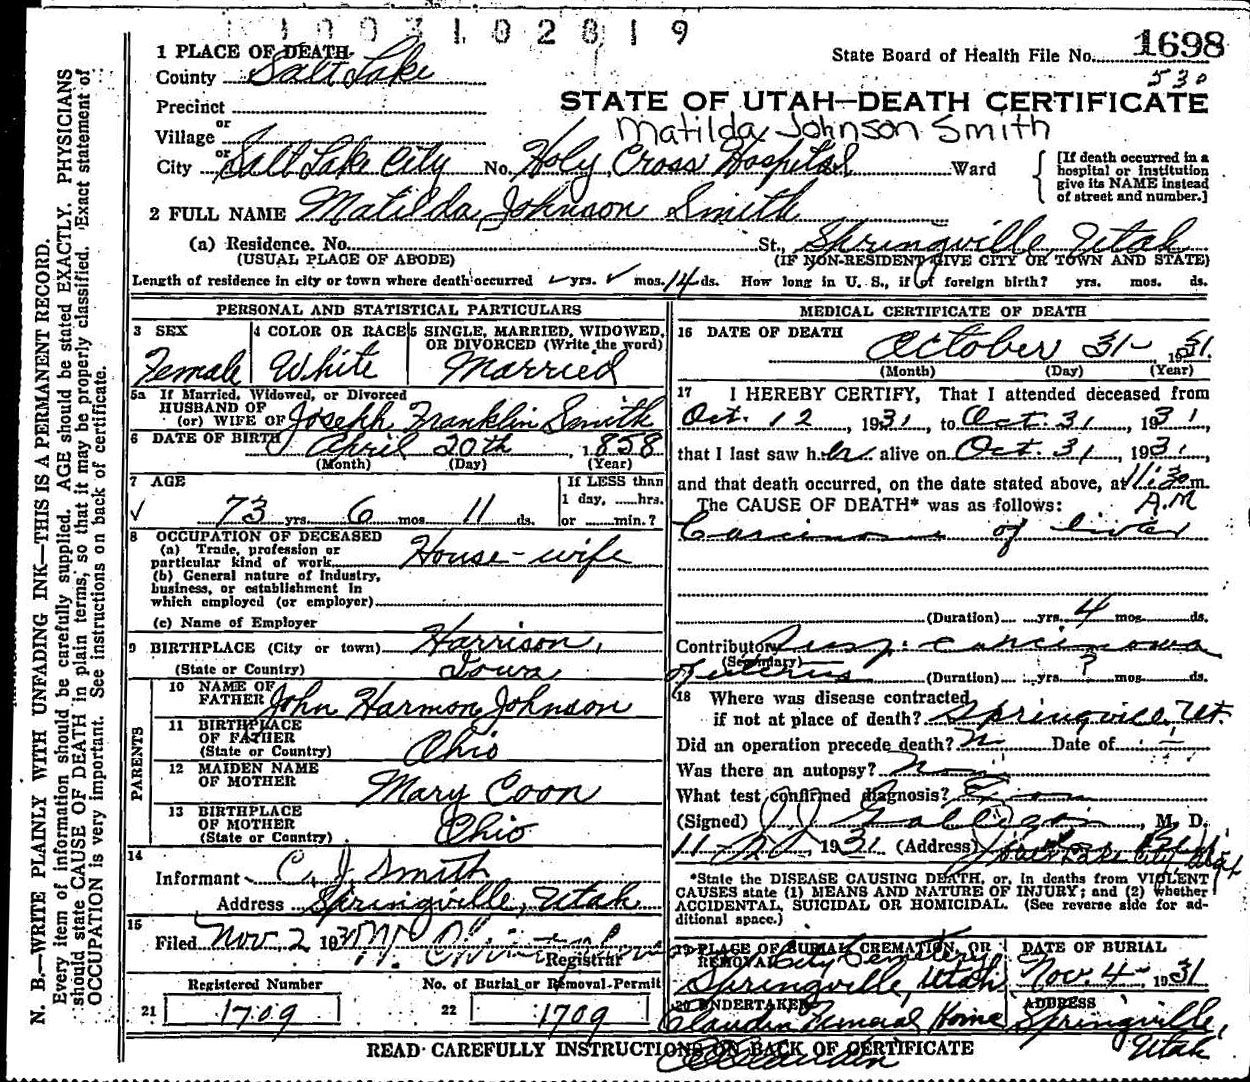 1003102819
State Board of Health File No. 1698
530
STATE OF UTAH—DEATH CERTIFICATE
Matilda Johnson Smith
1 PLACE OF DEATH
County Salt Lake
Precinct
or
Village
or
City Salt Lake City No. Holy Cross Hospital Ward
[If death occurred in a hospital or institution give its NAME instead of street and number.]
2 FULL NAME Matilda Johnson Smith
(a) Residence. No. St., Springville, Utah
(USUAL PLACE OF ABODE) (IF NON-RESIDENT GIVE CITY OR TOWN AND STATE)
Length of residence in city or town where death occurred ✓ yrs. ✓ mos. 14 ds. How long in U. S., if of foreign birth? yrs. mos. ds.
PERSONAL AND STATISTICAL PARTICULARS
3 SEX Female
4 COLOR OR RACE White
5 SINGLE, MARRIED, WIDOWED, OR DIVORCED (Write the word) Married
5a If Married, Widowed, or Divorced
HUSBAND OF
(or) WIFE OF Joseph Franklin Smith
6 DATE OF BIRTH April 20th, 1858
(Month) (Day) (Year)
7 AGE
✓ 73 yrs. 6 mos. 11 ds.
If LESS than 1 day, hrs. or min.?
8 OCCUPATION OF DECEASED
(a) Trade, profession or particular kind of work House-wife
(b) General nature of Industry, business, or establishment in which employed (or employer)
(c) Name of Employer
9 BIRTHPLACE (City or town) Harrison,
(State or Country) Iowa
PARENTS
10 NAME OF FATHER John Harmon Johnson
11 BIRTHPLACE OF FATHER (State or Country) Ohio
12 MAIDEN NAME OF MOTHER Mary Coon
13 BIRTHPLACE OF MOTHER (State or Country) Ohio
14
Informant C. J. Smith
Address Springville, Utah
15
Filed Nov. 2 193
Registrar
Registered Number
21 1709
No. of Burial or Removal Permit
22 1709
MEDICAL CERTIFICATE OF DEATH
16 DATE OF DEATH October 31- 1931.
(Month) (Day) (Year)
17 I HEREBY CERTIFY, That I attended deceased from
Oct. 12, 1931, to Oct. 31, 1931,
that I last saw her alive on Oct. 31, 1931,
and that death occurred, on the date stated above, at 11:30 m.
A.M
The CAUSE OF DEATH* was as follows:
Carcinoma of liver
(Duration) yrs. 4 mos. ds.
Contributory carcinoma
(Secondary)
of uterus (Duration) yrs. ? mos. ds.
18 Where was disease contracted
if not at place of death? Springville, Ut.
Did an operation precede death? Date of
Was there an autopsy?
What test confirmed diagnosis?
(Signed) M. D.
1931 (Address)
Salt Lake City
*State the DISEASE CAUSING DEATH, or, in deaths from VIOLENT CAUSES state (1) MEANS AND NATURE OF INJURY; and (2) whether ACCIDENTAL, SUICIDAL OR HOMICIDAL. (See reverse side for additional space.)
19 PLACE OF BURIAL, CREMATION, OR REMOVAL City Cemetery
Springville, Utah
DATE OF BURIAL
Nov. 4- 1931
20 UNDERTAKER
Claudin Funeral Home
ADDRESS
Springville, Utah
READ CAREFULLY INSTRUCTIONS ON BACK OF CERTIFICATE
N. B.—WRITE PLAINLY WITH UNFADING INK—THIS IS A PERMANENT RECORD.
Every item of information should be carefully supplied. AGE should be stated EXACTLY. PHYSICIANS
should state CAUSE OF DEATH in plain terms, so that it may be properly classified. Exact statement of
OCCUPATION is very important. See instructions on back of certificate.